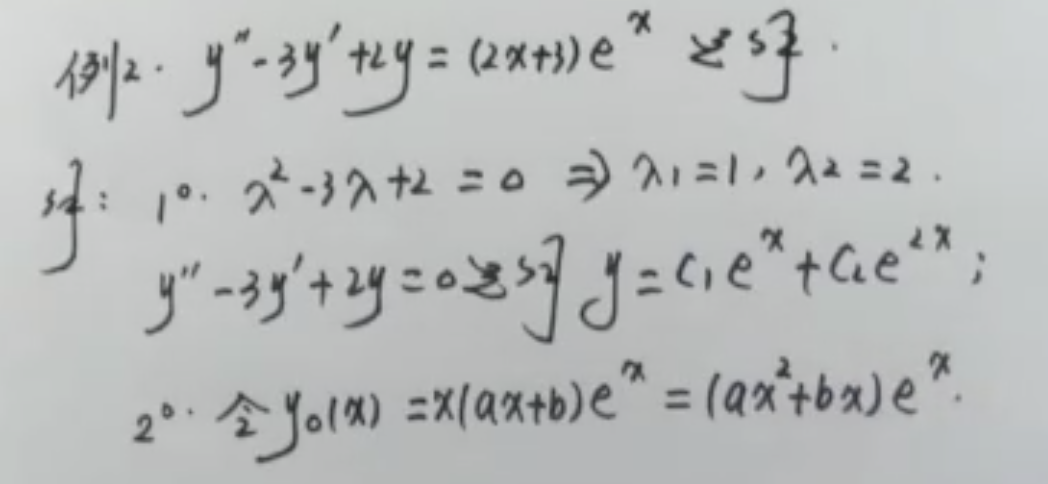 例2. y″-3y′+2y=(2x+3)eˣ 通解.
解: 1⁰. λ²-3λ+2=0 ⇒ λ₁=1, λ₂=2.
y″-3y′+2y=0通解 y=C₁eˣ+C₂e²ˣ;
2⁰. 令y₀(x)=x(ax+b)eˣ=(ax²+bx)eˣ.